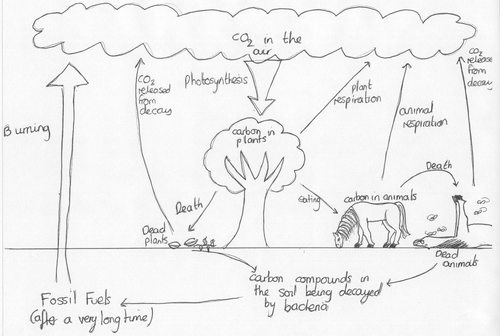 CO₂ in the
air
CO₂
released
from
decay
Photosynthesis
Plant
respiration
CO₂
release
from
decay
Burning
animal
respiration
carbon in
plants
Death
Death
eating
carbon in animals
Dead
plants
Dead
animals
Carbon compounds in
the soil being decayed
by bacteria
Fossil Fuels
(after a very long time)